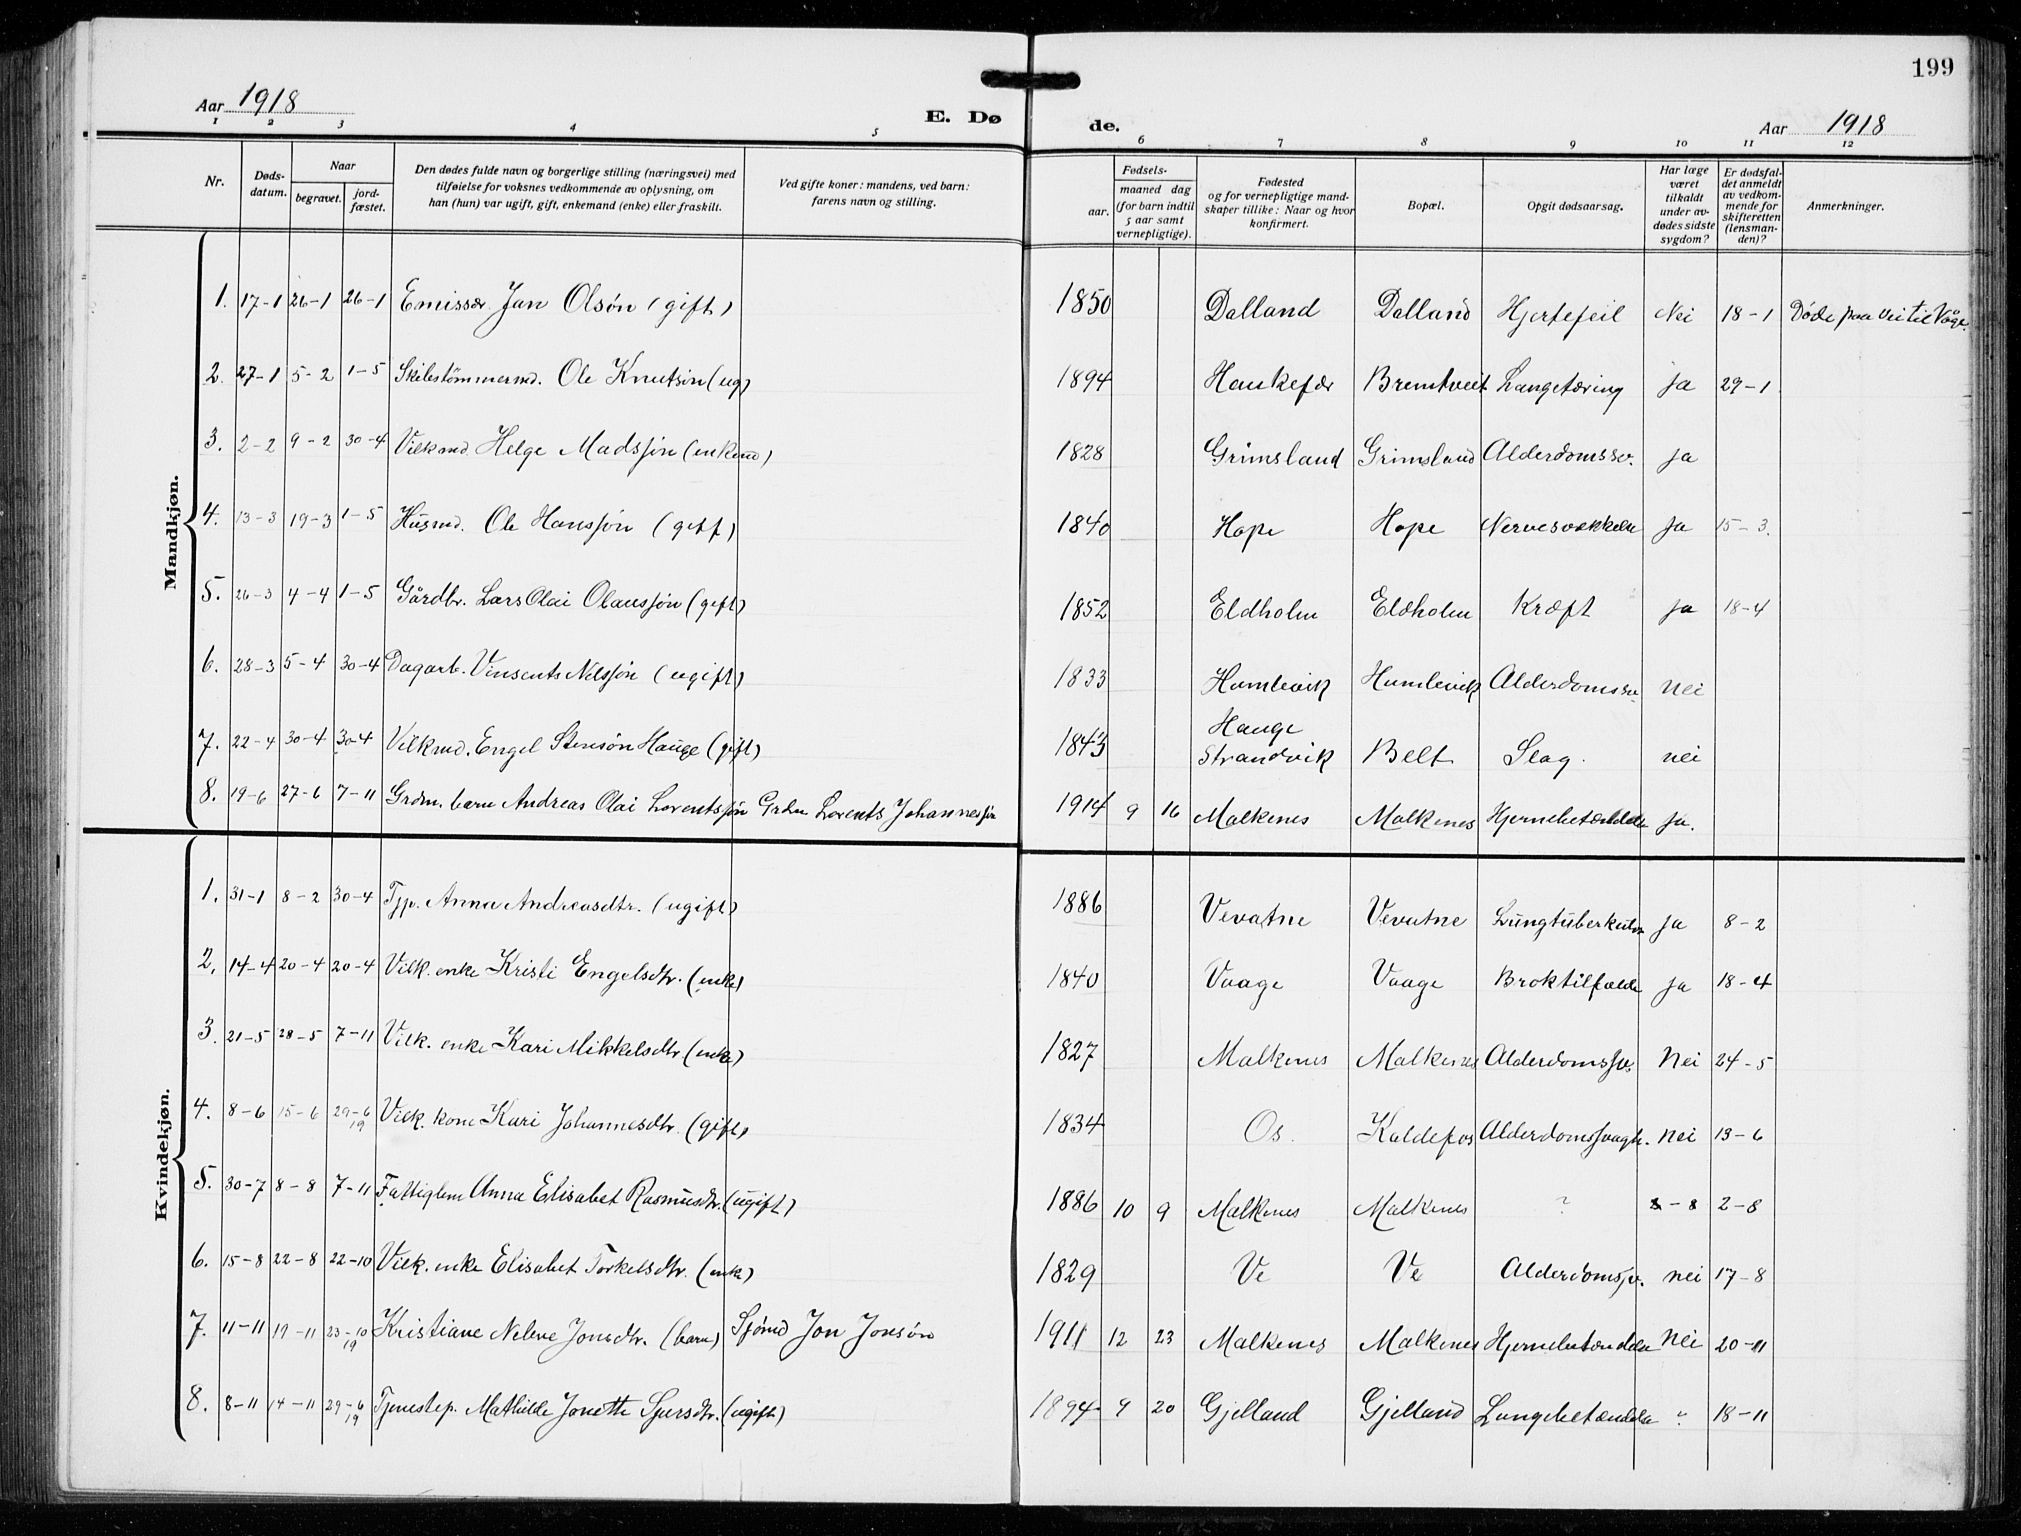 199
Aar 1918
E. Dø de.
Aar 1918
1 2 3 4 5 6 7 8 9 10 11 12
Nr.
Døds-
datum.
Naar
begravet.
jord-
fæstet.
Den dødes fulde navn og borgerlige stilling (næringsvei) med
tilføielse for voksnes vedkommende av oplysning, om
han (hun) var ugift, gift, enkemand (enke) eller fraskilt.
Ved gifte koner: mandens, ved barn:
farens navn og stilling.
Fødsels-
aar.
maaned dag
(for barn indtil
5 aar samt
vernepligtige).
Fødested
og for vernepligtige mand-
skaper tillike: Naar og hvor
konfirmert.
Bopæl.
Opgit dødsaarsag.
Har læge
været
tilkaldt
under av-
dødes sidste
sygdom?
Er dødsfal-
det anmeldt
av vedkom-
mende for
skifteretten
(lensman-
den)?
Anmerkninger.
Mandkjøn.
1. 17-1 26-1 26-1 Emissær Jan Olsøn (gift) 1850 Dalland Dalland Hjertefeil Nei 18-1 Døde paa vei til Våge.
2. 27-1 5-2 1-5 Skibstømmermd. Ole Knutsøn (ug) 1894 Haukefær Bremtveit Langetæring ja 29-1
3. 2-2 9-2 30-4 Vilkmd. Helge Madssøn (enkemd) 1828 Grimsland Grimsland Alderdomssv. ja
4. 13-3 19-3 1-5 Husmd. Ole Hanssøn (gift) 1840 Hope Hope Nervesvækkelse ja 15-3.
5. 26-3 4-4 1-5 Gårdbr. Lars Olai Olaussøn (gift) 1852 Eldholm Eldholm Kræft ja 18-4
6. 28-3 5-4 30-4 Dagarb. Vinsents Nilssøn (ugift) 1833 Humlevik Humlevik Alderdomssv. Nei
7. 22-4 30-4 30-4 Vilkmd. Engel Stensøn Hauge (gift) 1843 Hauge
Strandvik Belt Slag. nei
8. 19-6 27-6 7-11 Grdm. barn Andreas Olai Lorentssøn Grdm Lorents Johannessøn 1914 9 16 Malkenes Malkenes Hjernebetændelse ja.
Kvindekjøn.
1. 31-1 8-2 30-4 Tjp. Anna Andreasdtr. (ugift) 1886 Vevatne Vevatne Lungtuberkulos ja 8-2
2. 14-4 20-4 20-4 Vilk. enke Kristi Engelsdtr. (enke) 1840 Vaage Vaage Broktilfælde ja 18-4
3. 21-5 28-5 7-11 Vilk. enke Kari Mikkelsdtr (enke) 1827 Malkenes Malkenes Alderdomssv. Nei 24-5
4. 8-6 15-6 29-6
19 Vilk. kone Kari Johannesdtr. (gift) 1834 Os. Kaldefos Alderdomssvagh. Nei 13-6
5. 30-7 8-8 7-11 Fattiglem Anna Elisabet Rasmusdtr. (ugift) 1886 10 9 Malkenes Malkenes ? 8 2-8
6. 15-8 22-8 22-10 Vilk. enke Elisabet Torkelsdtr. (enke) 1829 Ve Ve Alderdomssv. nei 17-8
7. 11-11 19-11 23-10
19 Kristiane Nelene Jonsdtr. (barn) Sjømd Jon Jonsøn 1911 12 23 Malkenes Malkenes Hjernebetændelse Nei 20-11
8. 8-11 14-11 29-6
19 Tjenestep. Mathilde Jonette Sjursdtr. (ugift) 1894 9 20 Gjelland Gjelland Lungebetændelse ? 18-11